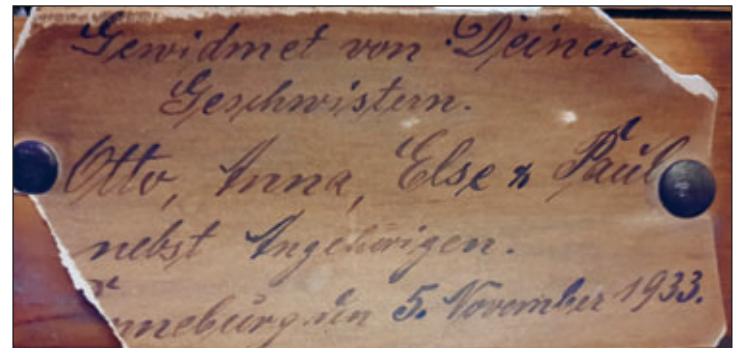 Gewidmet von Deinen
Geschwistern.
Otto, Anna, Else & Paul
nebst Angehörigen.
den 5. November 1933.